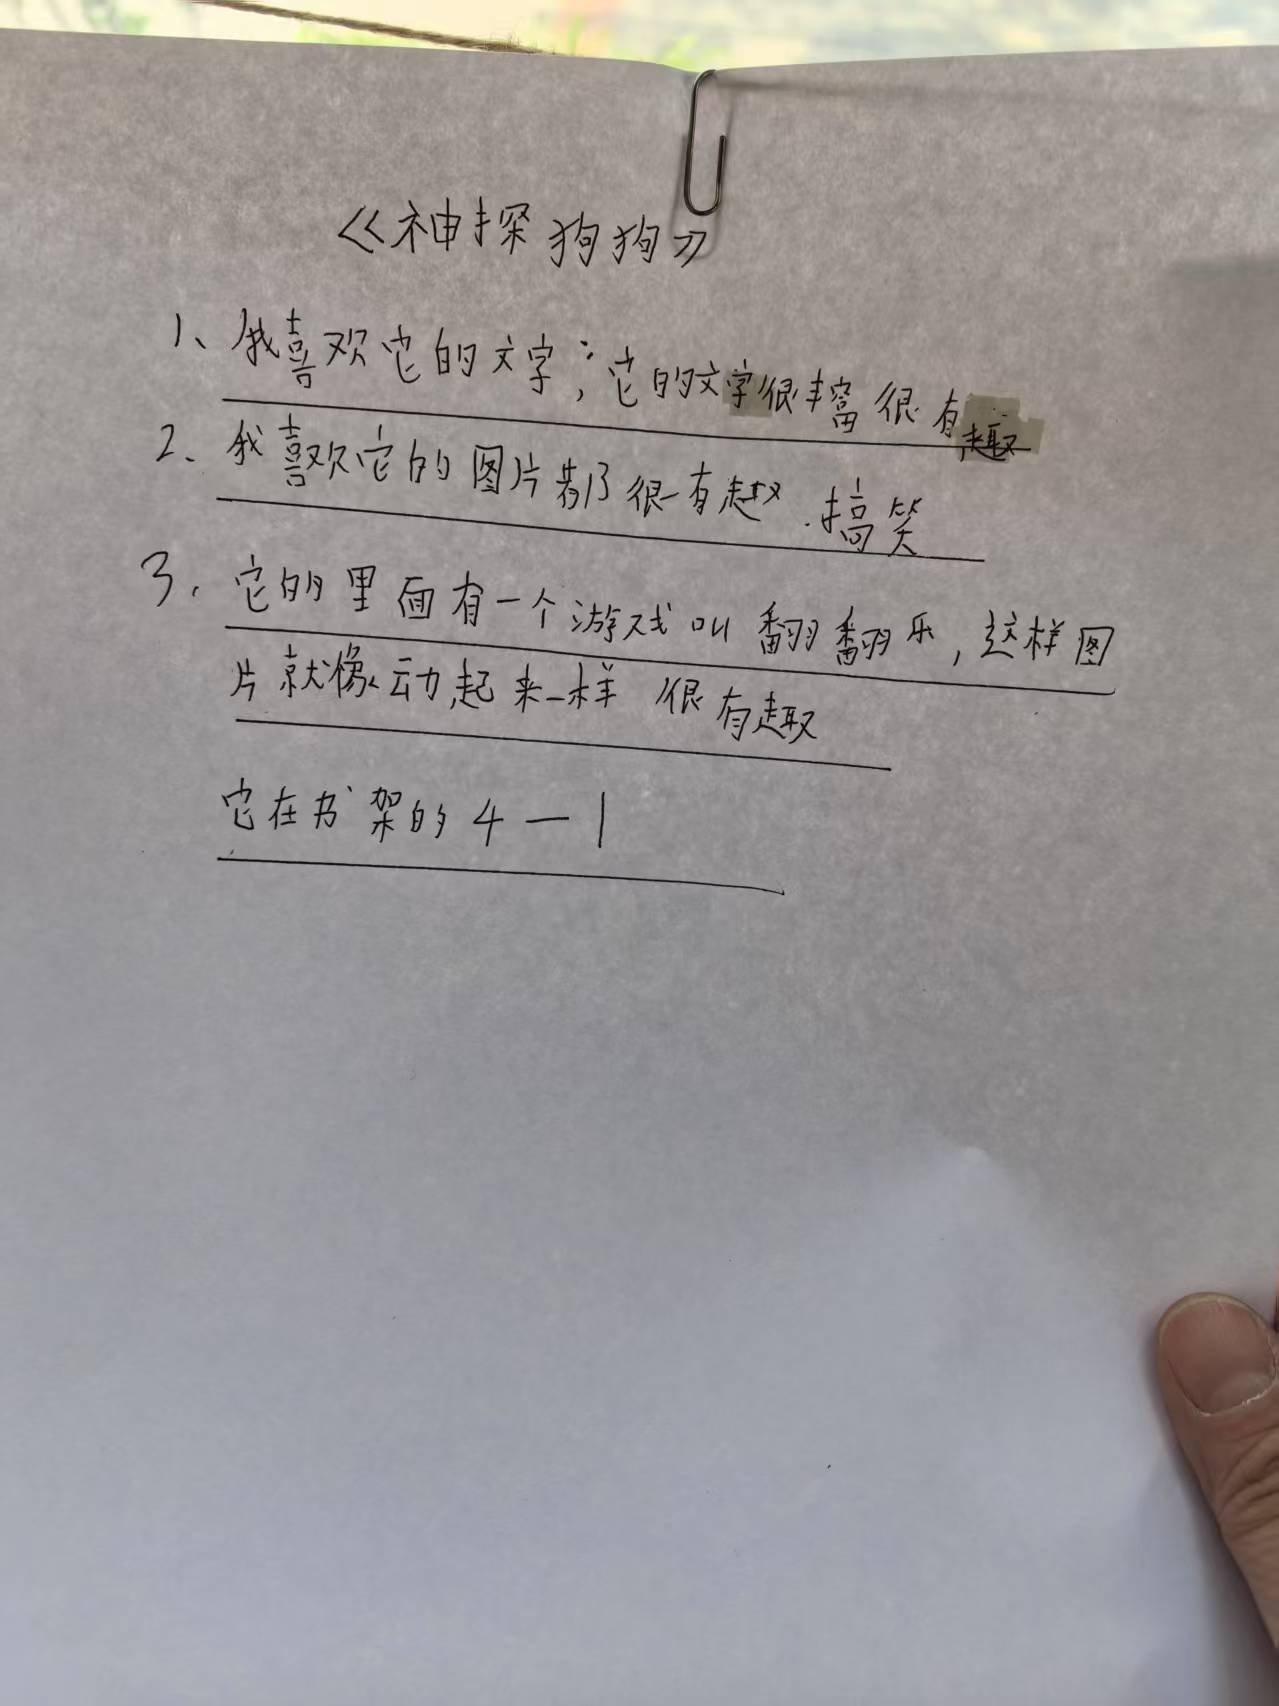 《神探狗狗》
1、我喜欢它的文字；它的文字很丰富很有趣
2、我喜欢它的图片都很有趣.搞笑
3.它的里面有一个游戏叫翻翻乐,这样图
片就像动起来一样 很有趣
它在书架的4—1